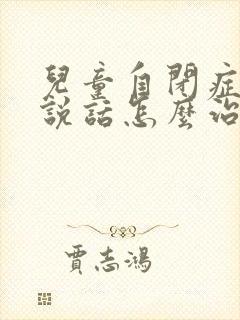 兒童自閉症
說話怎麼治
賈志鴻